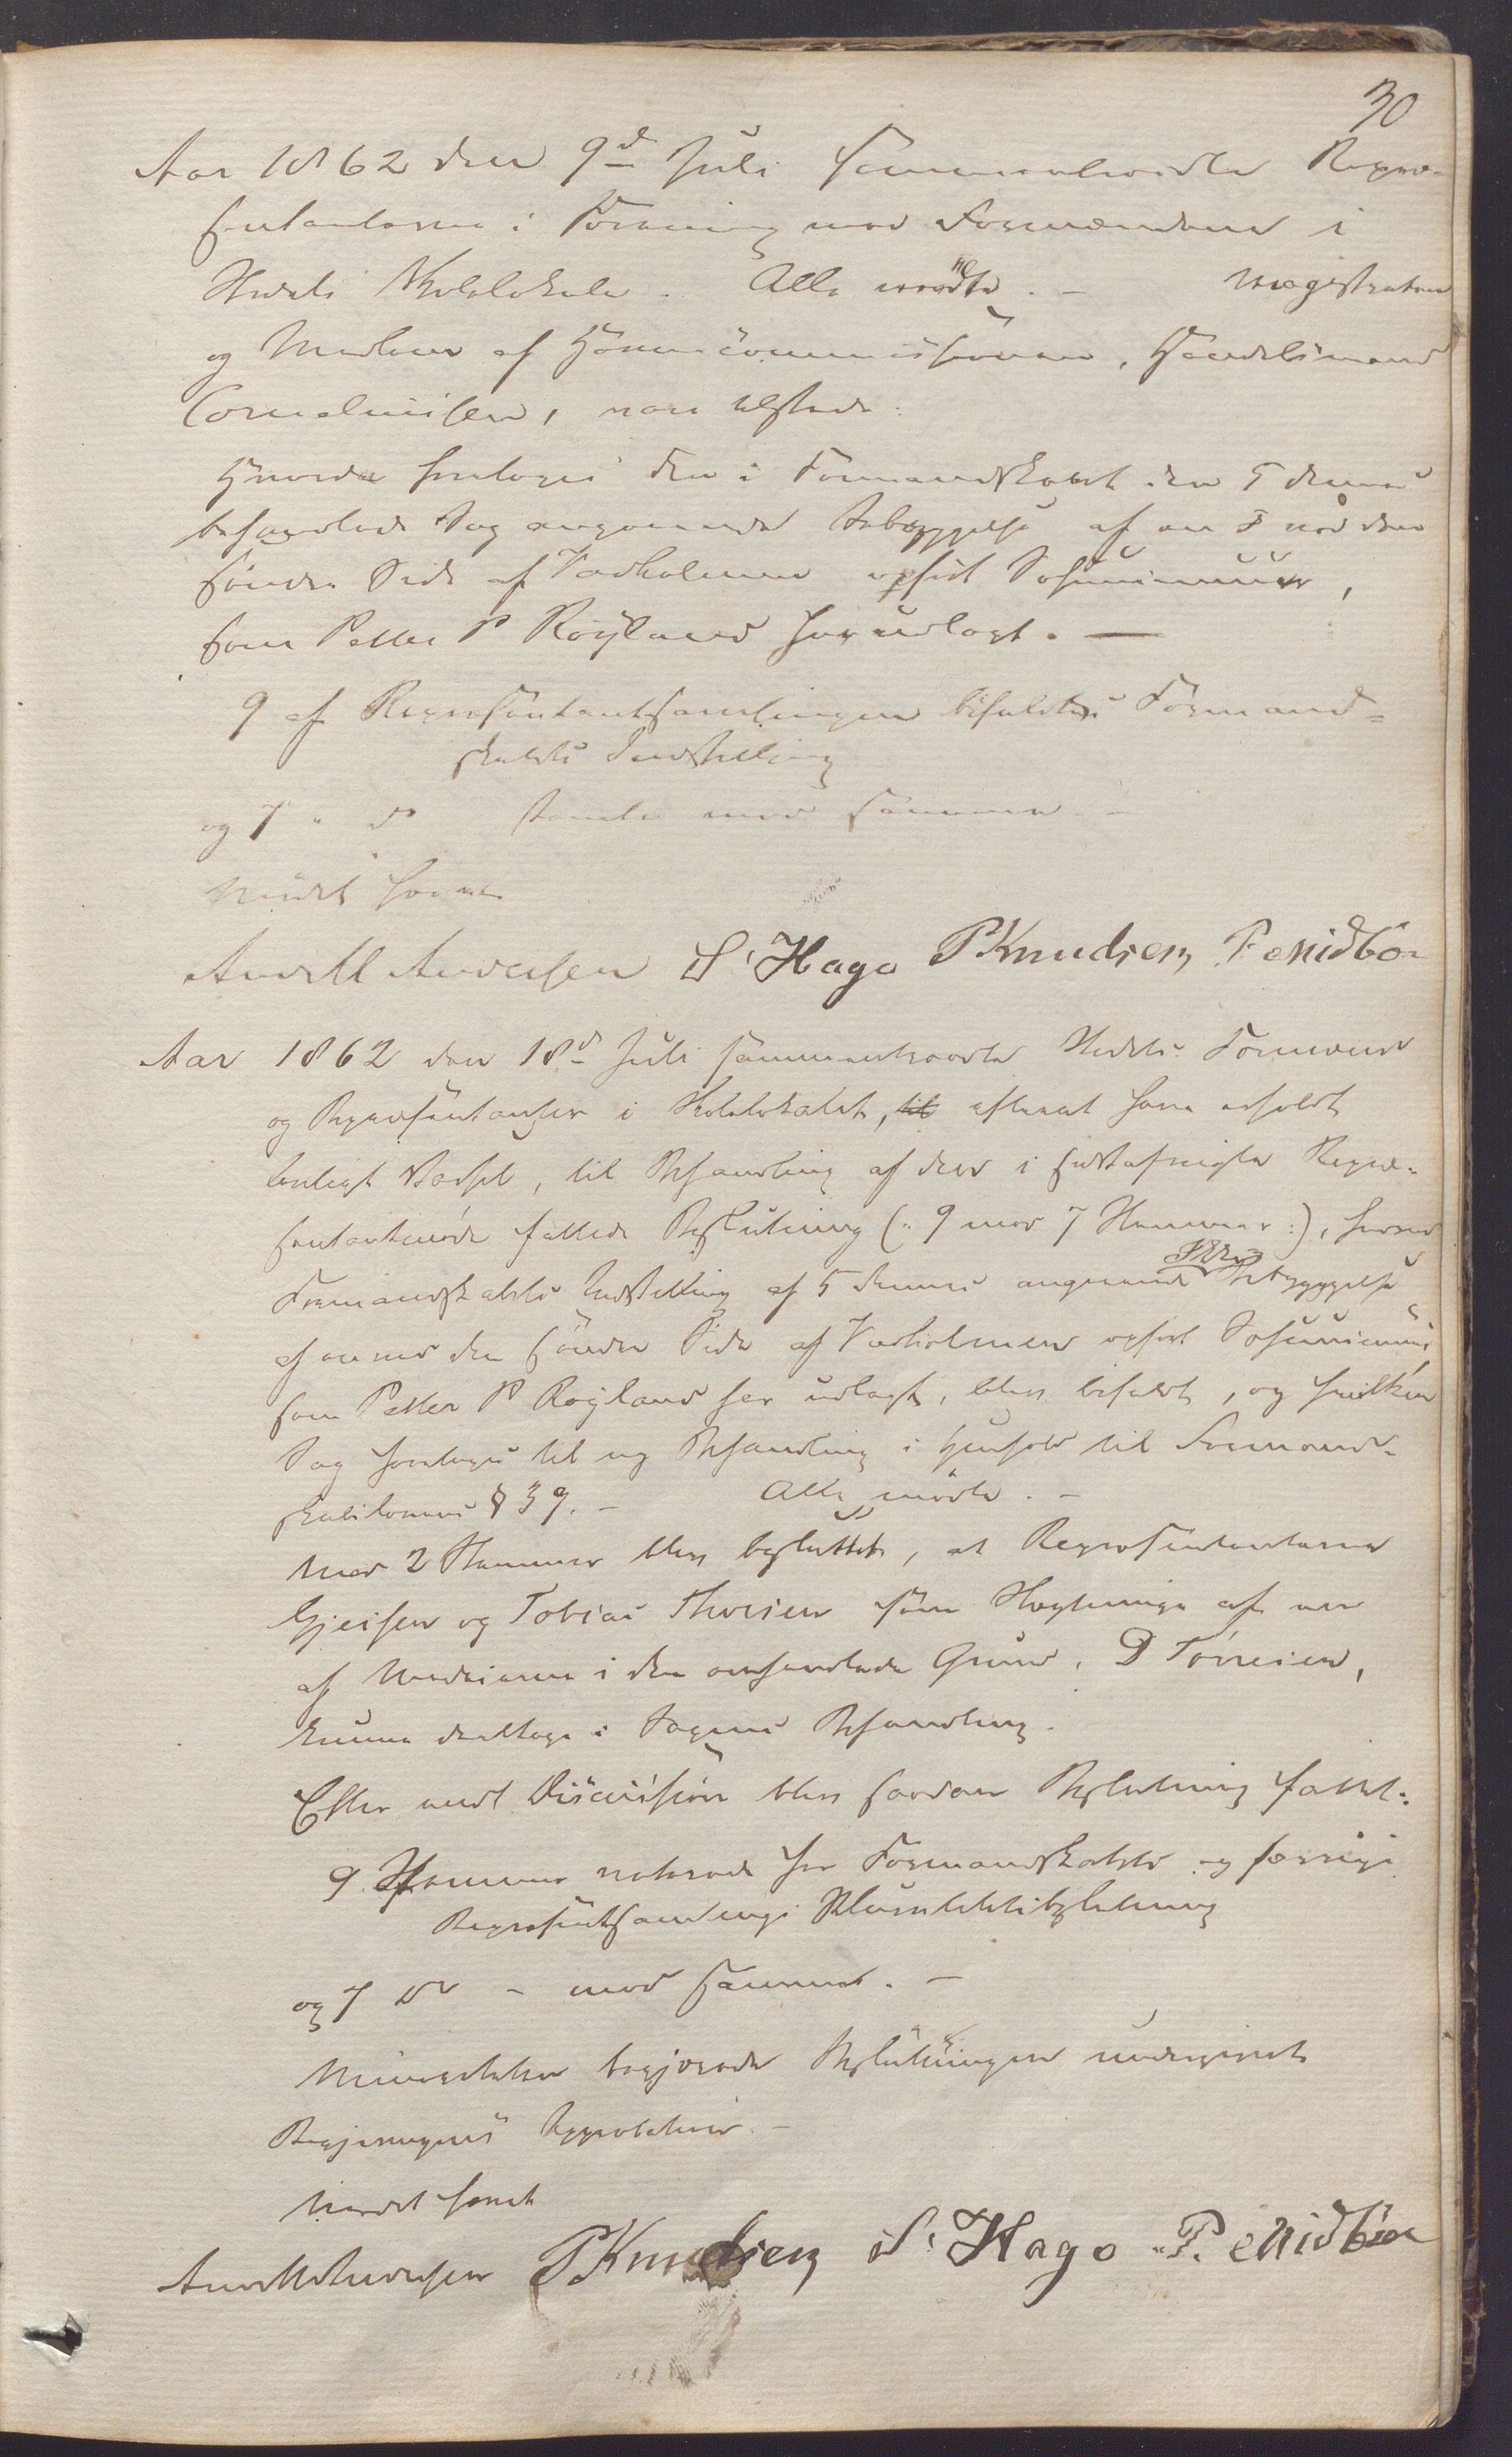 30
Aar 1862 den 9d Juli sammentraadte Repræ-
sentanterne i Forening med Formændene i
Stedets Skolelokale. Alle mødte. - Magistraten
og Medlem af Havnecommissionen, Handelsmand
Corneliussen, var tilstede.
Hvorda foretoges den i Formandskabet den 5 dennes
behandlede Sag angaaende Bebyggelse af en ved den
søndre Side af Vadholmen opført Søhuusmuur,
som Petter P Røyland har udlagt. —
9 af Repræsentantsamlingen bifaldte Formand-
skabets Indstilling
og 7 " do stemte mod samme -
Mødet hævet
And M Andersen S. Haga P Knudsen P. e Midbøe
Aar 1862 den 18d Juli sammentraadte Stedets Formænd
og Repræsentanter i Skolelokalet, efterat have erholdt
lovligt Varsel, til Behandling af den i sidstafvigte Repræ-
sentantmøde fattede Beslutning (: 9 mod 7 Stemmer :), hvorved
Formandskabets Indstilling af 5 dennes angaaende Bebyggelse
af en ved den søndre Side af Vadholmen opført Søhuusmuur
som Petter P Røyland har udlagt, blev bifaldt, og hvilken
Sag foretages til ny Behandling i Henhold til Formand-
skabslovens § 39. - Alle mødte. -
Med 2 Stemmer blev besluttet, at Repræsentanterne
Gjersen og Tobias Thorsen som Slægtninge af en
af Medeierne i den omhandlede Grund, D Tørresen,
kunne deeltage i Sagens Behandling.
Efter endt Discussion blev saadan Beslutning fattet:
9 Stemmer voterede for Formandskabets og forrige
Repræsentsamlings Pluralitetsbeslutning
og 7 do - mod samme. -
Minoriteten begjærede Beslutningen undergivet
Regjeringens Approbation. -
Mødet hævet
And M Andersen P Knudsen S. Haga P. e Midbøe